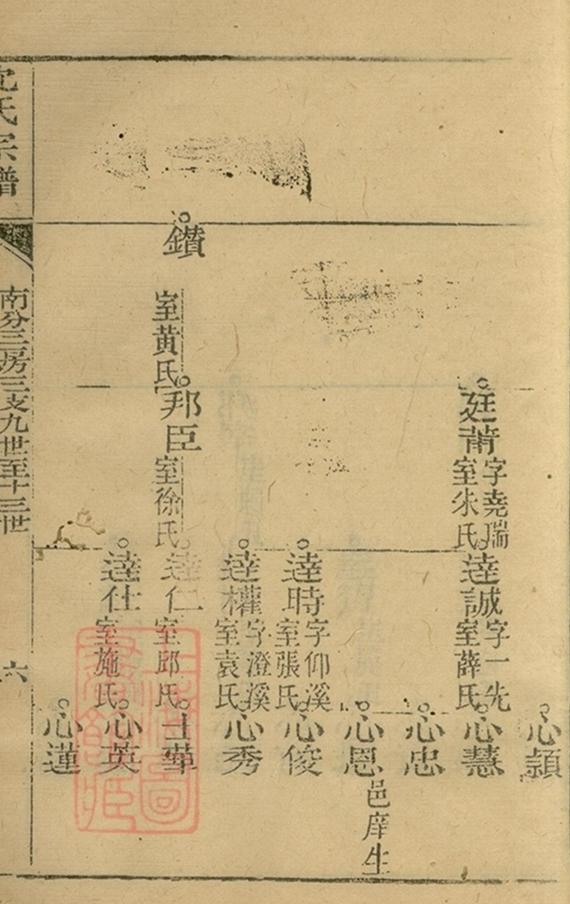 心穎
廷莆
字堯瑞
室朱氏
逵誠
字一先
室薛氏
心慧
心忠
心恩
邑庠生
逵時
字仰溪
室張氏
心俊
逵權
字澄溪
室袁氏
心秀
鑽
室黄氏
邦臣
室徐氏
逵仁
室邱氏
士華
逵仕
室施氏
心英
心蓮
沈氏宗譜
南分三房三支九世至十三世
六